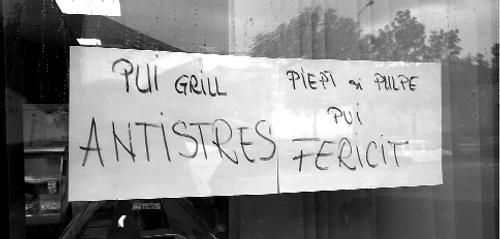 PUI GRILL
ANTISTRES
PIEPT și PULPE
PUI
FERICIT